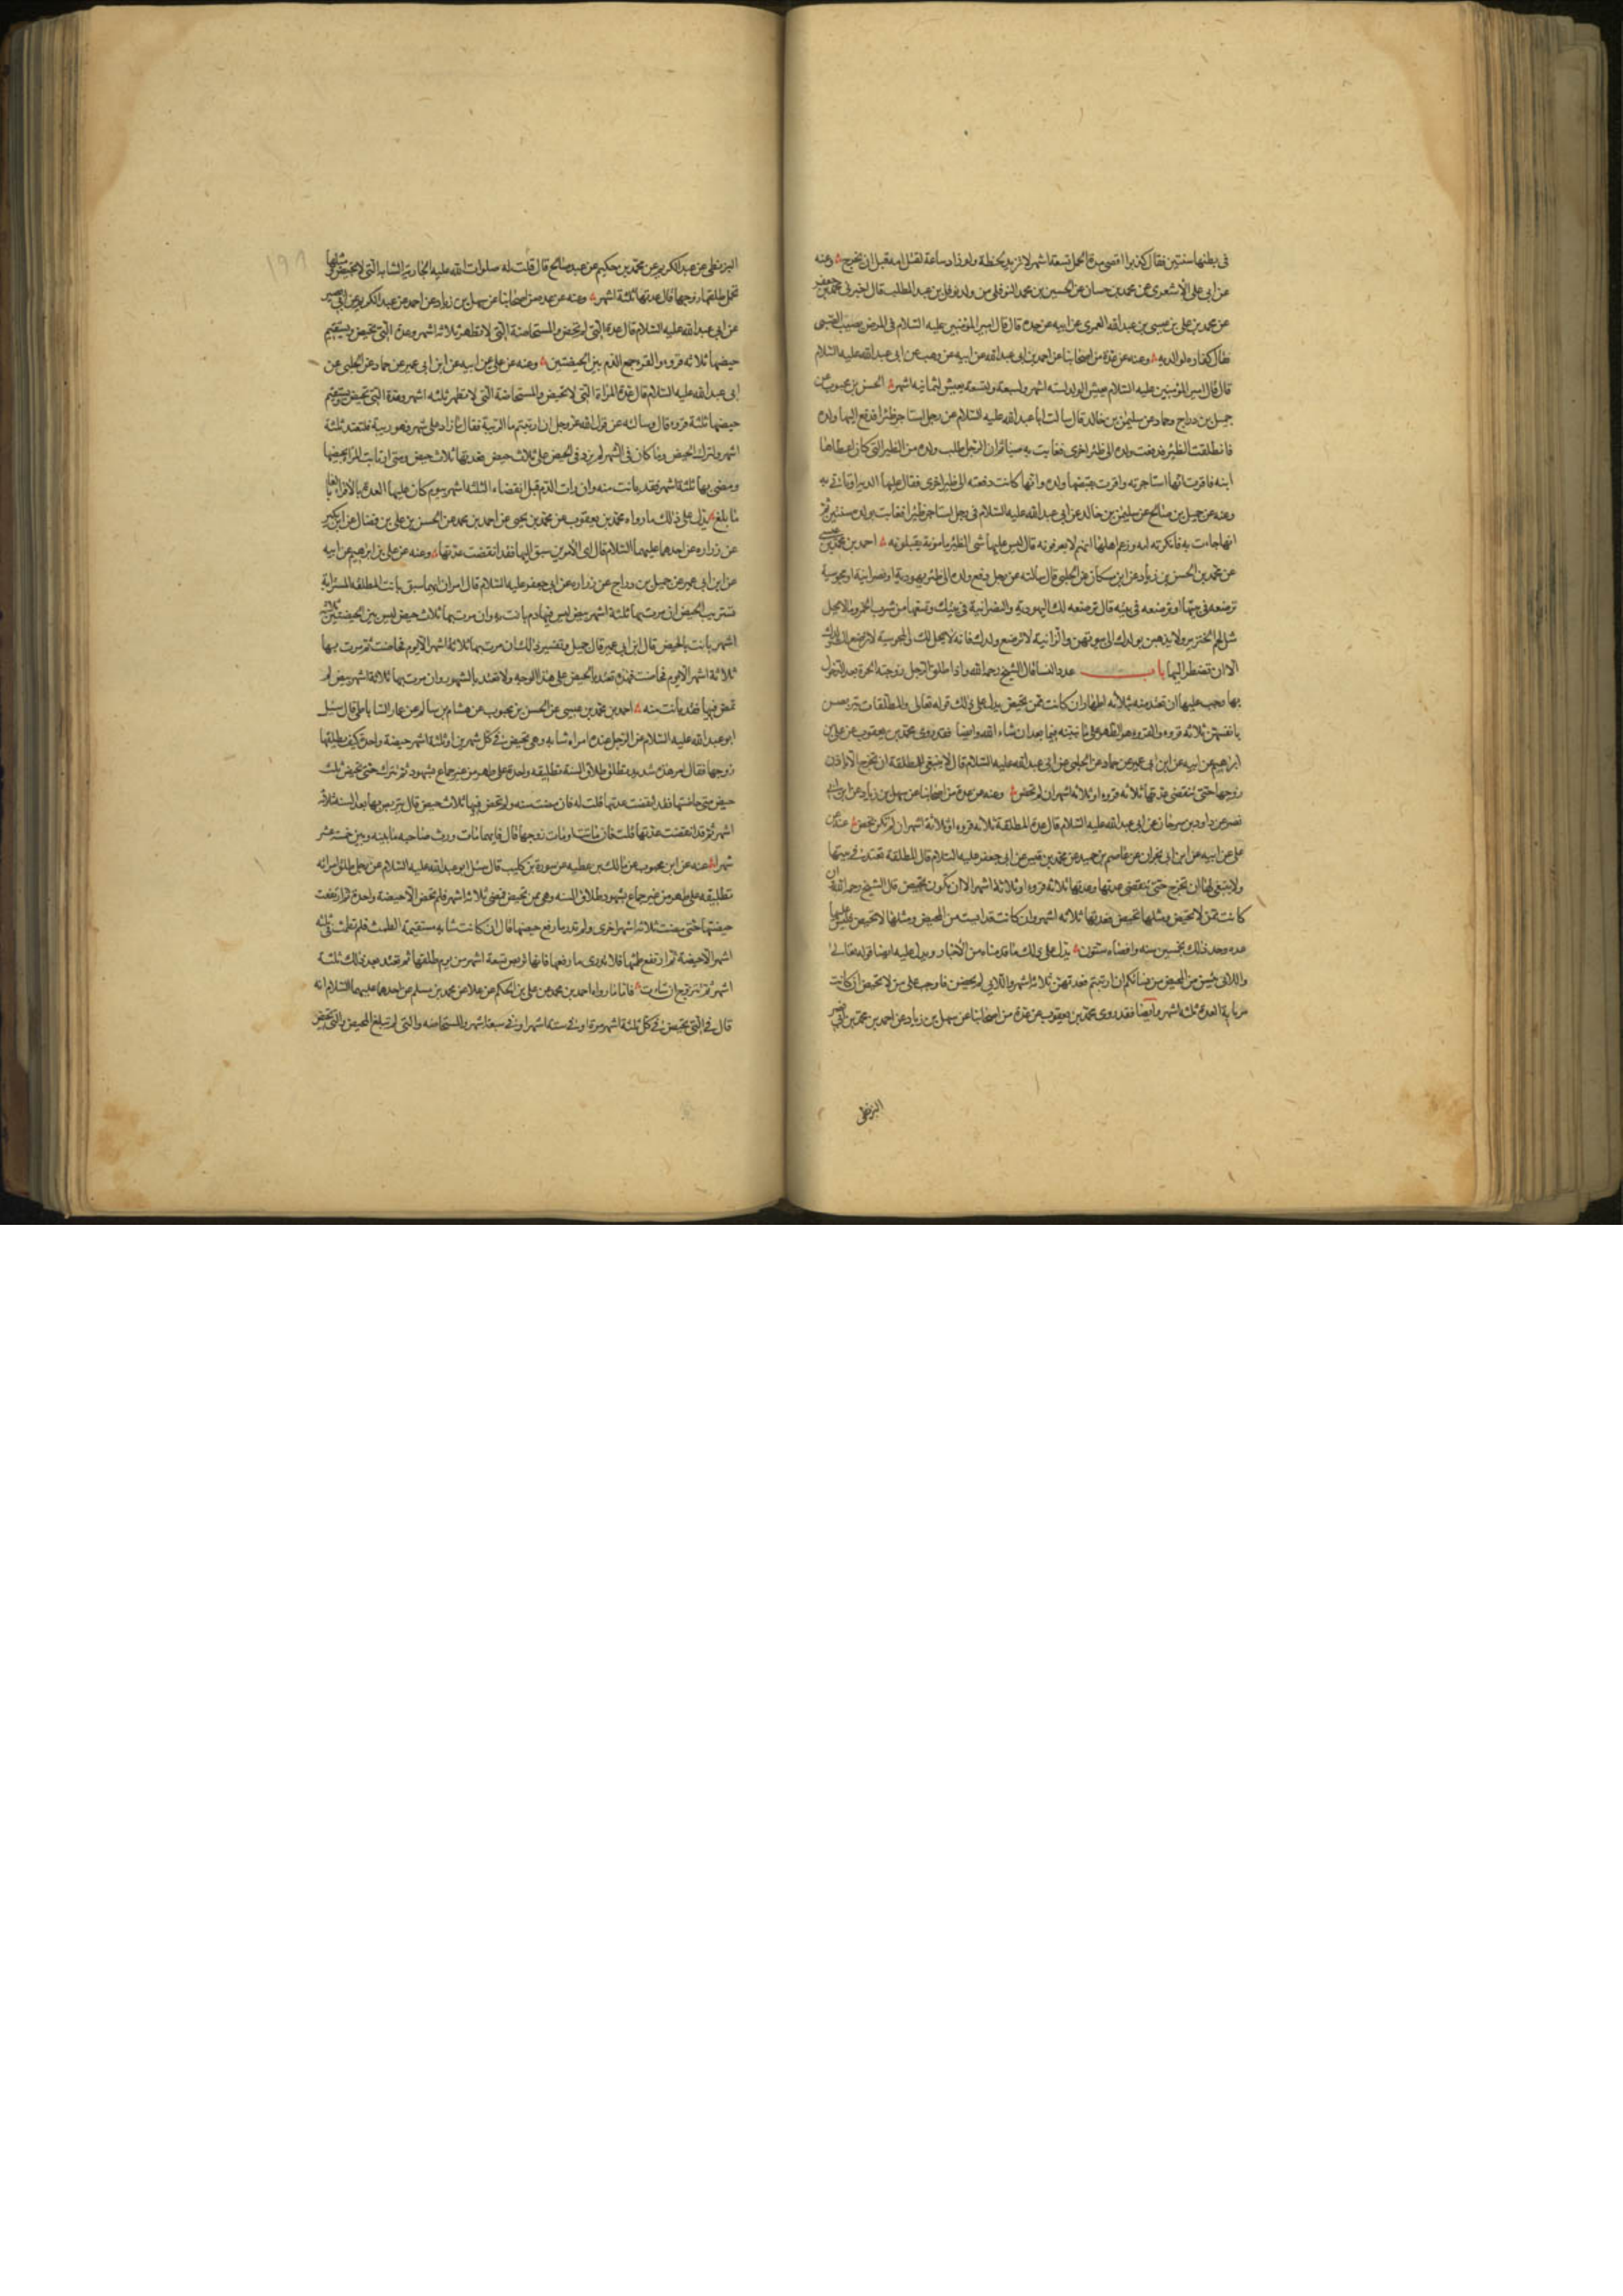 فى بطنها سنتين فقال كذبوا اقصى مدة الحمل تسعة اشهر لا يزيد لحظة ولو زاد ساعة لقتل امه قبل ان يخرج وعنه
عن ابى على الاشعرى عن محمد بن حسان عن الحسين بن محمد النوفلى من ولد نوفل بن عبد المطلب قال اخبرنى محمد بن جعفر
عن محمد بن على بن عيسى بن عبد الله العمرى عن ابيه عن جده قال قال امير المؤمنين عليه السلام فى المرض يصيب الصبى
فقال كفارة لوالديه وعنه عن عدة من اصحابنا عن احمد بن ابى عبد الله عن ابيه عن وهب عن ابى عبد الله عليه السلام
قال قال امير المؤمنين عليه السلام يعيش الولد لستة اشهر ولسبعة ولتسعة ولا يعيش لثمانية اشهر الحسن بن محبوب عن
جميل بن دراج وحماد عن سليمن بن خالد قال سالت ابا عبد الله عليه السلام عن رجل استاجر ظئرا فدفع اليها ولده
فانطلقت الظئر فدفعت ولده الى ظئر اخرى فغابت به حينا ثم ان الرجل طلب ولده من الظئر التى كان اعطاها
ابنه فاقرت انها استاجرته واقرت بقبضها ولده وانها كانت دفعته الى ظئر اخرى فقال عليها الدية او تاتى به
وعنه عن جميل بن صالح عن سليمن بن خالد عن ابى عبد الله عليه السلام فى رجل استاجر ظئرا فغابت بولده سنتين ثم
انها جاءت به فانكرته امه وزعم اهلها انهم لا يعرفونه قال ليس عليها شى الظئر مامونة يقبلونه احمد بن محمد بن عيسى
عن محمد بن الحسن بن زياد عن ابن مسكان عن الحلبى قال سالته عن رجل دفع ولده الى ظئر يهودية او نصرانية او مجوسية
ترضعه فى بيتها او ترضعه فى بيته قال ترضعه لك اليهودية والنصرانية فى بيتك وتمنعها من شرب الخمر وما لا يحل
مثل لحم الخنزير ولا يذهبن بولدك الى بيوتهن والزانية لا ترضع ولدك فانه لا يحل لك والمجوسية لا ترضع لك ولدك
الا ان تضطر اليها باب عدد النساء قال الشيخ رحمه الله واذا طلق الرجل زوجته الحرة بعد الدخول
بها وجب عليها ان تعتد منه بثلاثة اطهار ان كانت ممن تحيض يدل على ذلك قوله تعالى والمطلقات يتربصن
بانفسهن ثلاثة قروء والقروء هو الطهر على ما نبينه فيما بعد ان شاء الله وايضا فقد روى محمد بن يعقوب عن على بن
ابراهيم عن ابيه عن ابن ابى عمير عن حماد عن الحلبى عن ابى عبد الله عليه السلام قال لا ينبغى للمطلقة ان تخرج الا باذن
زوجها حتى تنقضى عدتها ثلاثة قروء او ثلاثة اشهر ان لم تحض وعنه عن عدة من اصحابنا عن سهل بن زياد عن ابن ابى
نصر عن داود بن سرحان عن ابى عبد الله عليه السلام قال عدة المطلقة ثلاثة قروء او ثلاثة اشهر ان لم تكن تحيض عنه عن
على عن ابيه عن ابن ابى نجران عن عاصم بن حميد عن محمد بن قيس عن ابى جعفر عليه السلام قال المطلقة تعتد فى بيتها
ولا ينبغى لها ان تخرج حتى تنقضى عدتها وعدتها ثلاثة قروء او ثلاثة اشهر الا ان تكون تحيض قال الشيخ رحمه الله وان
كانت ممن لا تحيض ومثلها تحيض فعدتها ثلاثة اشهر وان كانت قد ايست من المحيض ومثلها لا تحيض فليس عليها
عدة وحد ذلك بخمسين سنة واقصاه ستون يدل على ذلك ما قدمناه من الاخبار ويدل عليه ايضا قوله تعالى
واللائى يئسن من المحيض من نسائكم ان ارتبتم فعدتهن ثلاثة اشهر واللائى لم يحضن فاوجب على من لا تحيض ان كانت
مرتابة العدة ثلثة اشهر وايضا فقد روى محمد بن يعقوب عن عدة من اصحابنا عن سهل بن زياد عن احمد بن محمد بن ابى نصر
البزنطى
البزنطى عن عبد الكريم عن محمد بن حكيم عن عبد صالح قال قلت له صلوات الله عليه الجارية الشابة التى لا تحيض ومثلها
تحمل طلقها زوجها قال عدتها ثلثة اشهر وعنه عن عدة من اصحابنا عن سهل بن زياد عن احمد عن عبد الكريم عن ابى بصير
عن ابى عبد الله عليه السلام قال عدة التى لم تحض والمستحاضة التى لا تطهر ثلاثة اشهر وعدة التى تحيض ويستقيم
حيضها ثلاثة قروء والقرء جمع الدم بين الحيضتين وعنه عن على عن ابيه عن ابن ابى عمير عن حماد عن الحلبى عن
ابى عبد الله عليه السلام قال عدة المراة التى لا تحيض والمستحاضة التى لا تطهر ثلثه اشهر وعدة التى تحيض ويستقيم
حيضها ثلثة قروء قال وسالته عن قول الله عز وجل ان ارتبتم ما الريبة فقال ما زاد على شهر فهو ريبة فلتعتد ثلثة
اشهر ولتترك الحيض وما كان فى الشهر لم يزد فى الحيض على ثلاث حيض فعدتها ثلاث حيض ومتى ارتابت المراة بحيضها
ومضى بها ثلثة اشهر فقد بانت منه وان رات الدم قبل انقضاء الثلثة اشهر بيوم كان عليها العدة بالاقراء بالغا
ما بلغ يدل على ذلك ما رواه محمد بن يعقوب عن محمد بن يحيى عن احمد بن محمد عن الحسن بن على بن فضال عن ابن بكير
عن زراره عن احدهما عليهما السلام قال اى الامرين سبق اليها فقد انقضت عدتها وعنه عن على بن ابرهيم عن ابيه
عن ابن ابى عمير عن جميل بن دراج عن زراره عن ابى جعفر عليه السلام قال امران ايهما سبق بانت المطلقة المسترابة
تستريب الحيض ان مرت بها ثلثة اشهر بيض ليس فيها دم بانت به وان مرت بها ثلاث حيض ليس بين الحيضتين ثلثة
اشهر بانت بالحيض قال ابن ابى عمير قال جميل وتفسير ذلك ان مرت بها ثلاثة اشهر الا يوم فحاضت ثم مرت بها
ثلاثة اشهر الا يوم فحاضت فهذه تعتد بالحيض على هذا الوجه ولا تعتد بالشهور وان مرت بها ثلاثة اشهر بيض لم
تحض فيها فقد بانت منه احمد بن محمد بن عيسى عن الحسن بن محبوب عن هشام بن سالم عن عمار الساباطى قال سئل
ابو عبد الله عليه السلام عن الرجل عنده امراه شابه وهى تحيض فى كل شهرين او ثلثة اشهر حيضة واحدة كيف يطلقها
زوجها فقال امر هذه شديد تطلق طلاق السنة تطليقة واحدة على طهر من غير جماع بشهود ثم تترك حتى تحيض ثلث
حيض متى حاضتها فقد انقضت عدتها قلت له فان مضت سنه ولم تحض فيها ثلاث حيض قال يتربص بها بعد السنة ثلاثة
اشهر ثم قد انقضت عدتها قلت فان ماتت او مات زوجها قال فايهما مات ورث صاحبه ما بينه وبين خمسة عشر
شهرا وعنه عن ابن محبوب عن مالك بن عطيه عن سورة بن كليب قال سئل ابو عبد الله عليه السلام عن رجل طلق امراته
تطليقه على طهر من غير جماع بشهود طلاق السنه وهى ممن تحيض فمضى ثلاثة اشهر فلم تحض الا حيضة واحدة ثم ارتفعت
حيضتها حتى مضت ثلاثة اشهر اخرى ولم تدر ما رفع حيضتها قال ان كانت شابه مستقيمة الطمث فلم تطمث فى ثلثة
اشهر الا حيضة ثم ارتفع طمثها فلا تدرى ما رفعها فانها تربص تسعة اشهر من يوم طلقها ثم تعتد بعد ذلك ثلثة
اشهر ثم تتزوج ان شاءت فاما ما رواه احمد بن محمد عن على بن الحكم عن علا عن محمد بن مسلم عن احدهما عليهما السلام انه
قال فى التى تحيض فى كل ثلثة اشهر مرة او فى ستة اشهر او فى سبعة اشهر والمستحاضه والتى لم تبلغ المحيض والتى تحيض